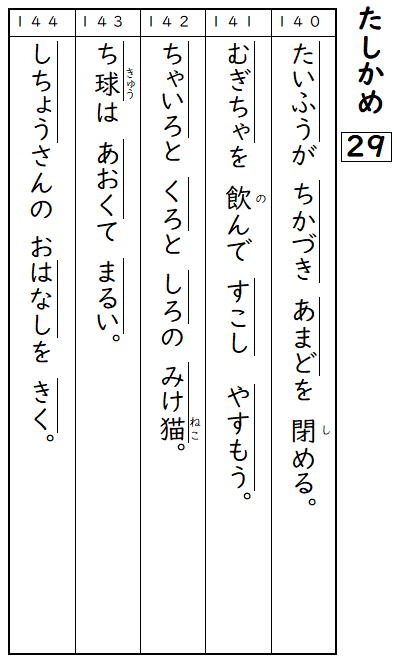 たしかめ 29
140
たいふうが ちかづき あまどを 閉める。
し
141
むぎちゃを 飲んで すこし やすもう。
の
142
ちゃいろと くろと しろの みけ猫。
ねこ
143
ち球は あおくて まるい。
きゅう
144
しちょうさんの おはなしを きく。